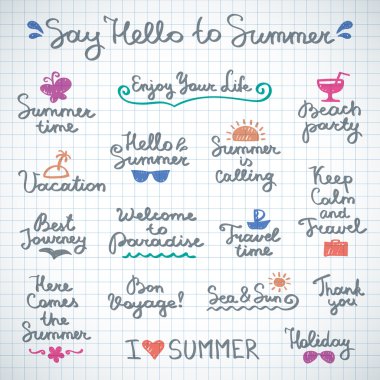 Say Hello to Summer
Summer
time
Enjoy Your Life
Beach
party
Hello
Summer
Summer
is
calling
Vacation
Keep
Calm
and
Travel
Best
Journey
Welcome
to
Paradise
Travel
time
Here
Comes
the
Summer
Bon
Voyage!
Sea & Sun
Thank
you
I SUMMER
Holiday